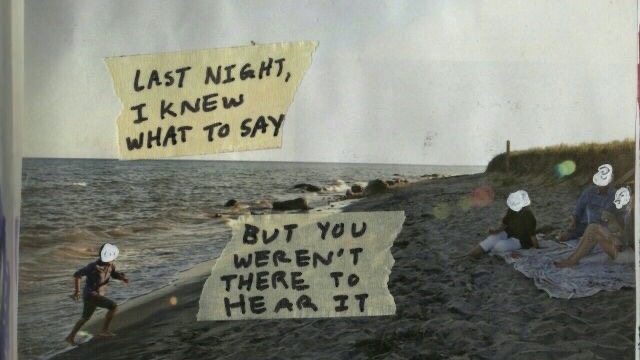 LAST NIGHT,
I KNEW
WHAT TO SAY
BUT YOU
WEREN'T
THERE TO
HEAR IT